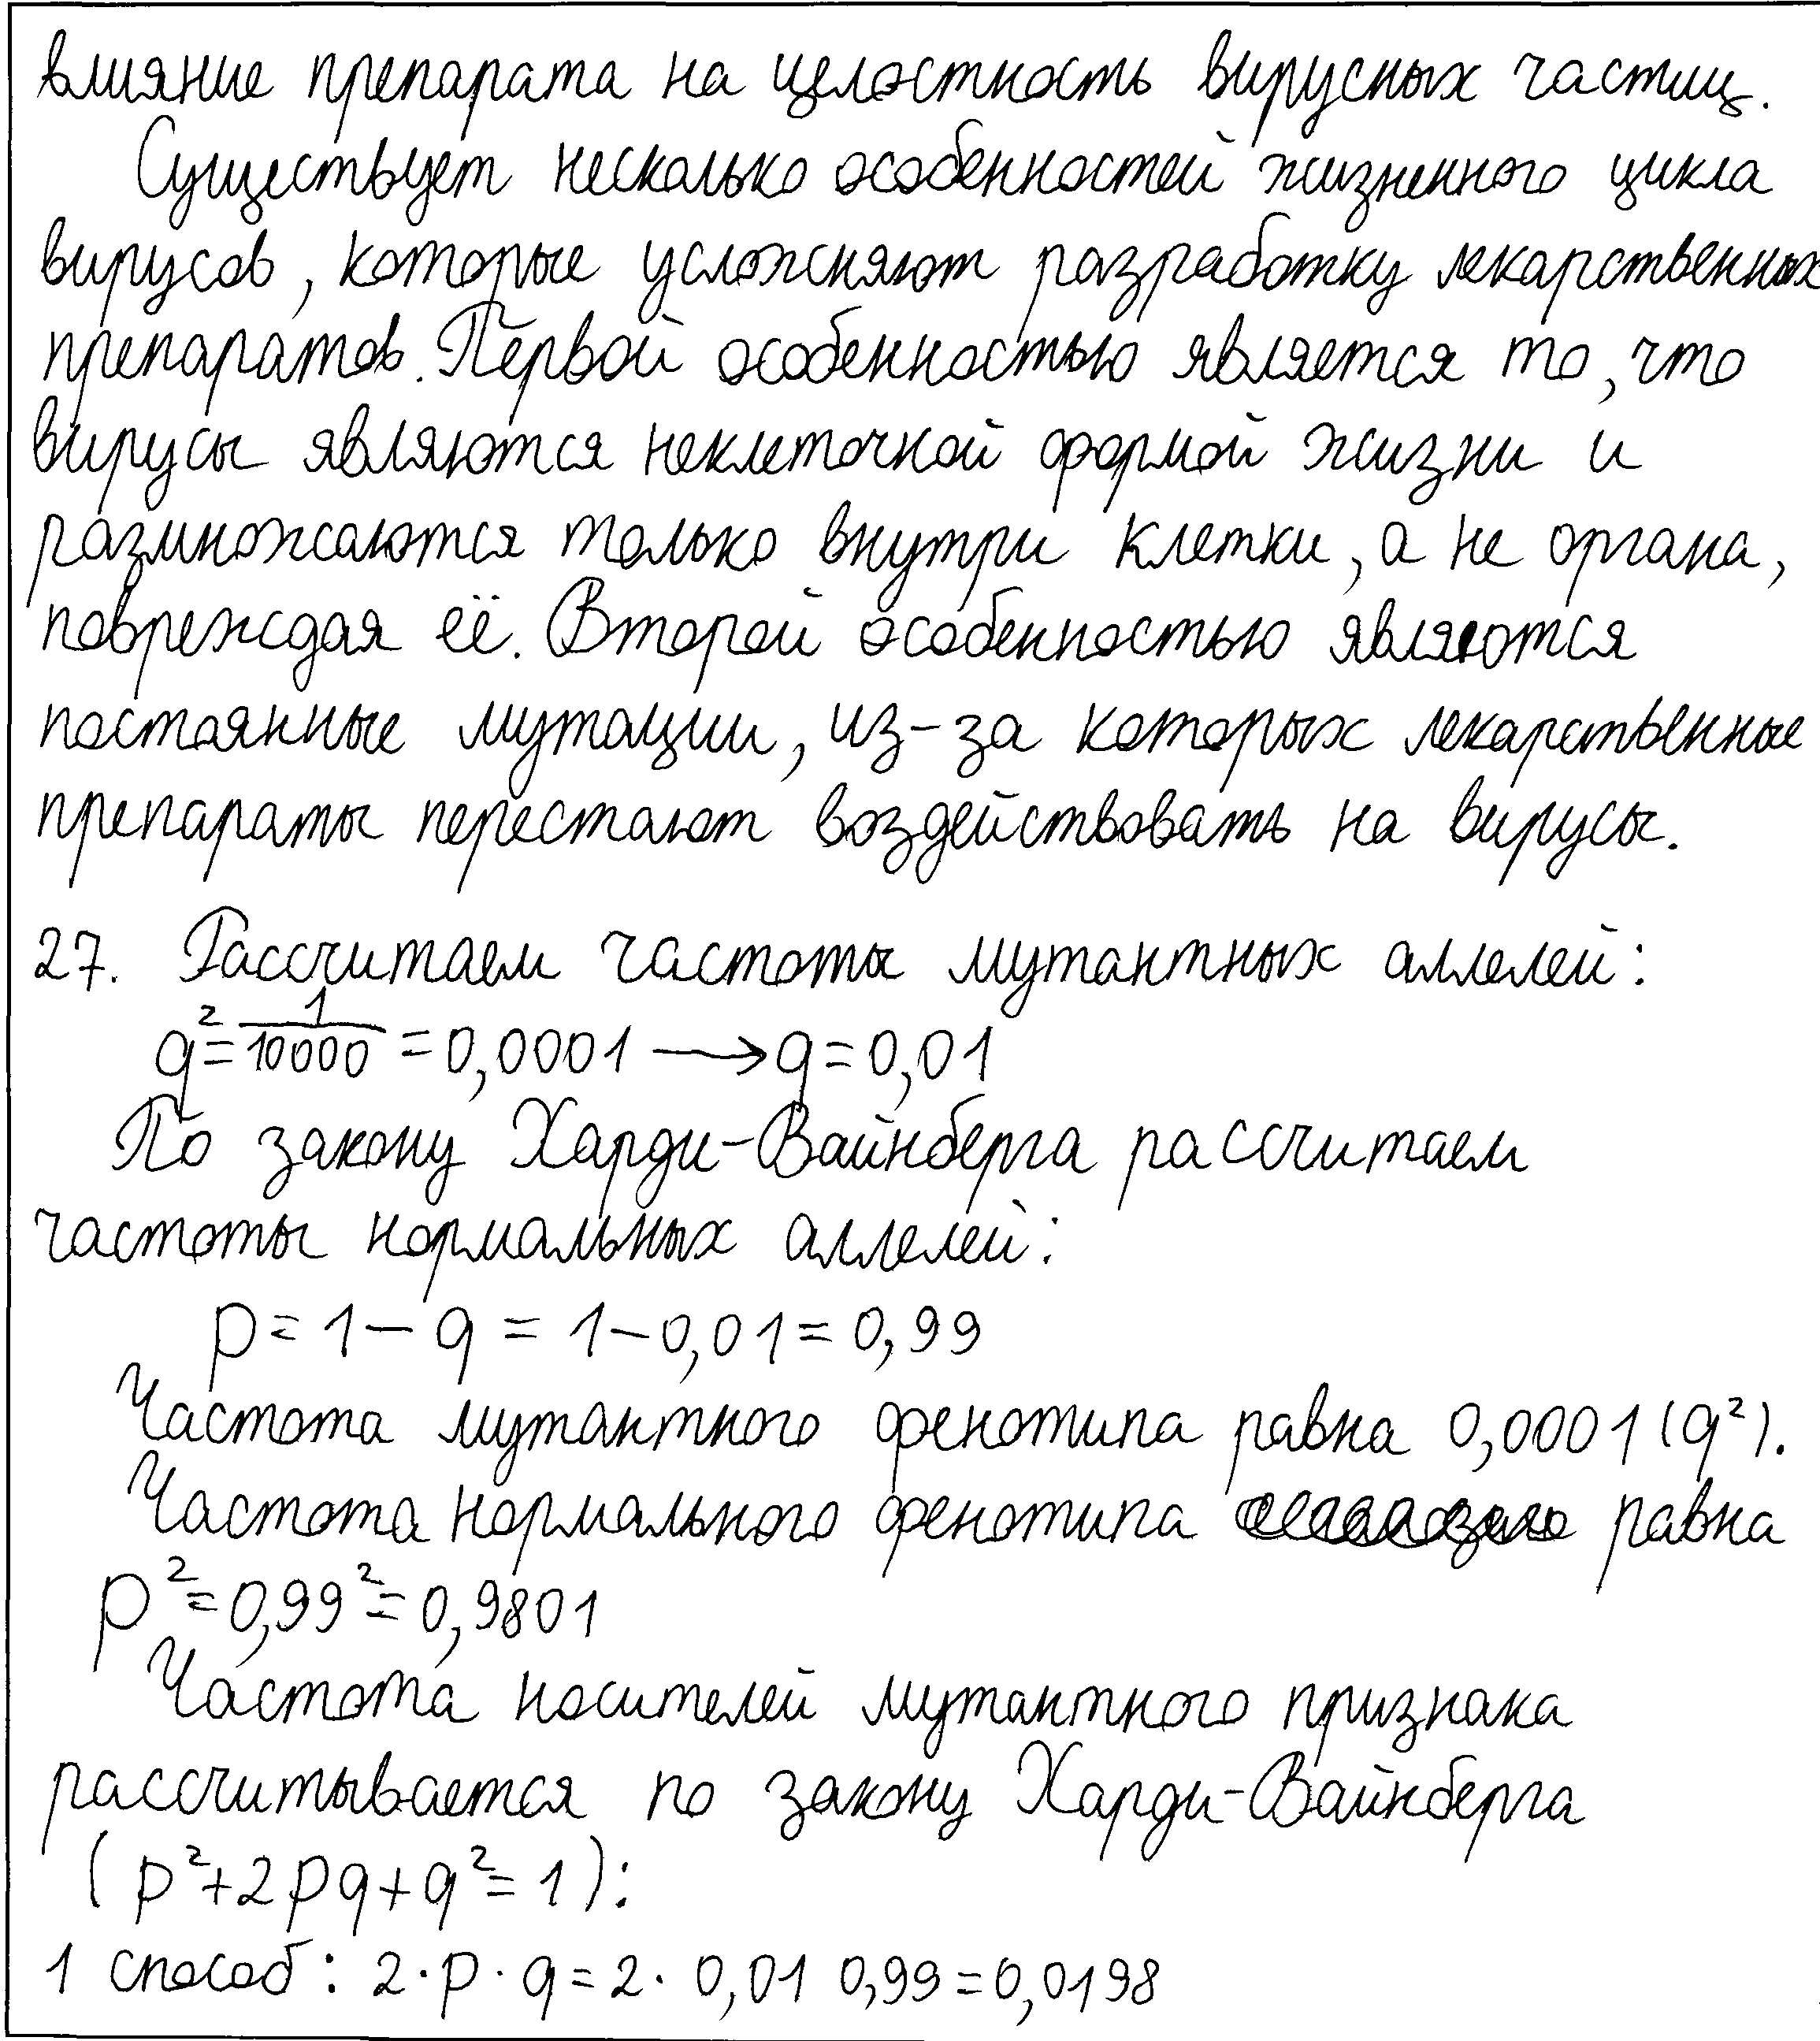 влияние препарата на целостность вирусных частиц.
Существует несколько особенностей жизненного цикла
вирусов, которые усложняют разработку лекарственных
препаратов. Первой особенностью является то, что
вирусы являются неклеточной формой жизни и
размножаются только внутри клетки, а не органа,
повреждая её. Второй особенностью являются
постоянные мутации, из-за которых лекарственные
препараты перестают воздействовать на вирусы.
27. Рассчитаем частоты мутантных аллелей:
q² = 1/10000 = 0,0001 → q = 0,01
По закону Харди-Вайнберга рассчитаем
частоты нормальных аллелей:
p = 1 - q = 1 - 0,01 = 0,99
Частота мутантного фенотипа равна 0,0001 (q²).
Частота нормального фенотипа равна
p² = 0,99² = 0,9801
Частота носителей мутантного признака
рассчитывается по закону Харди-Вайнберга
(p² + 2pq + q² = 1):
1 способ: 2 · p · q = 2 · 0,01 0,99 = 0,0198